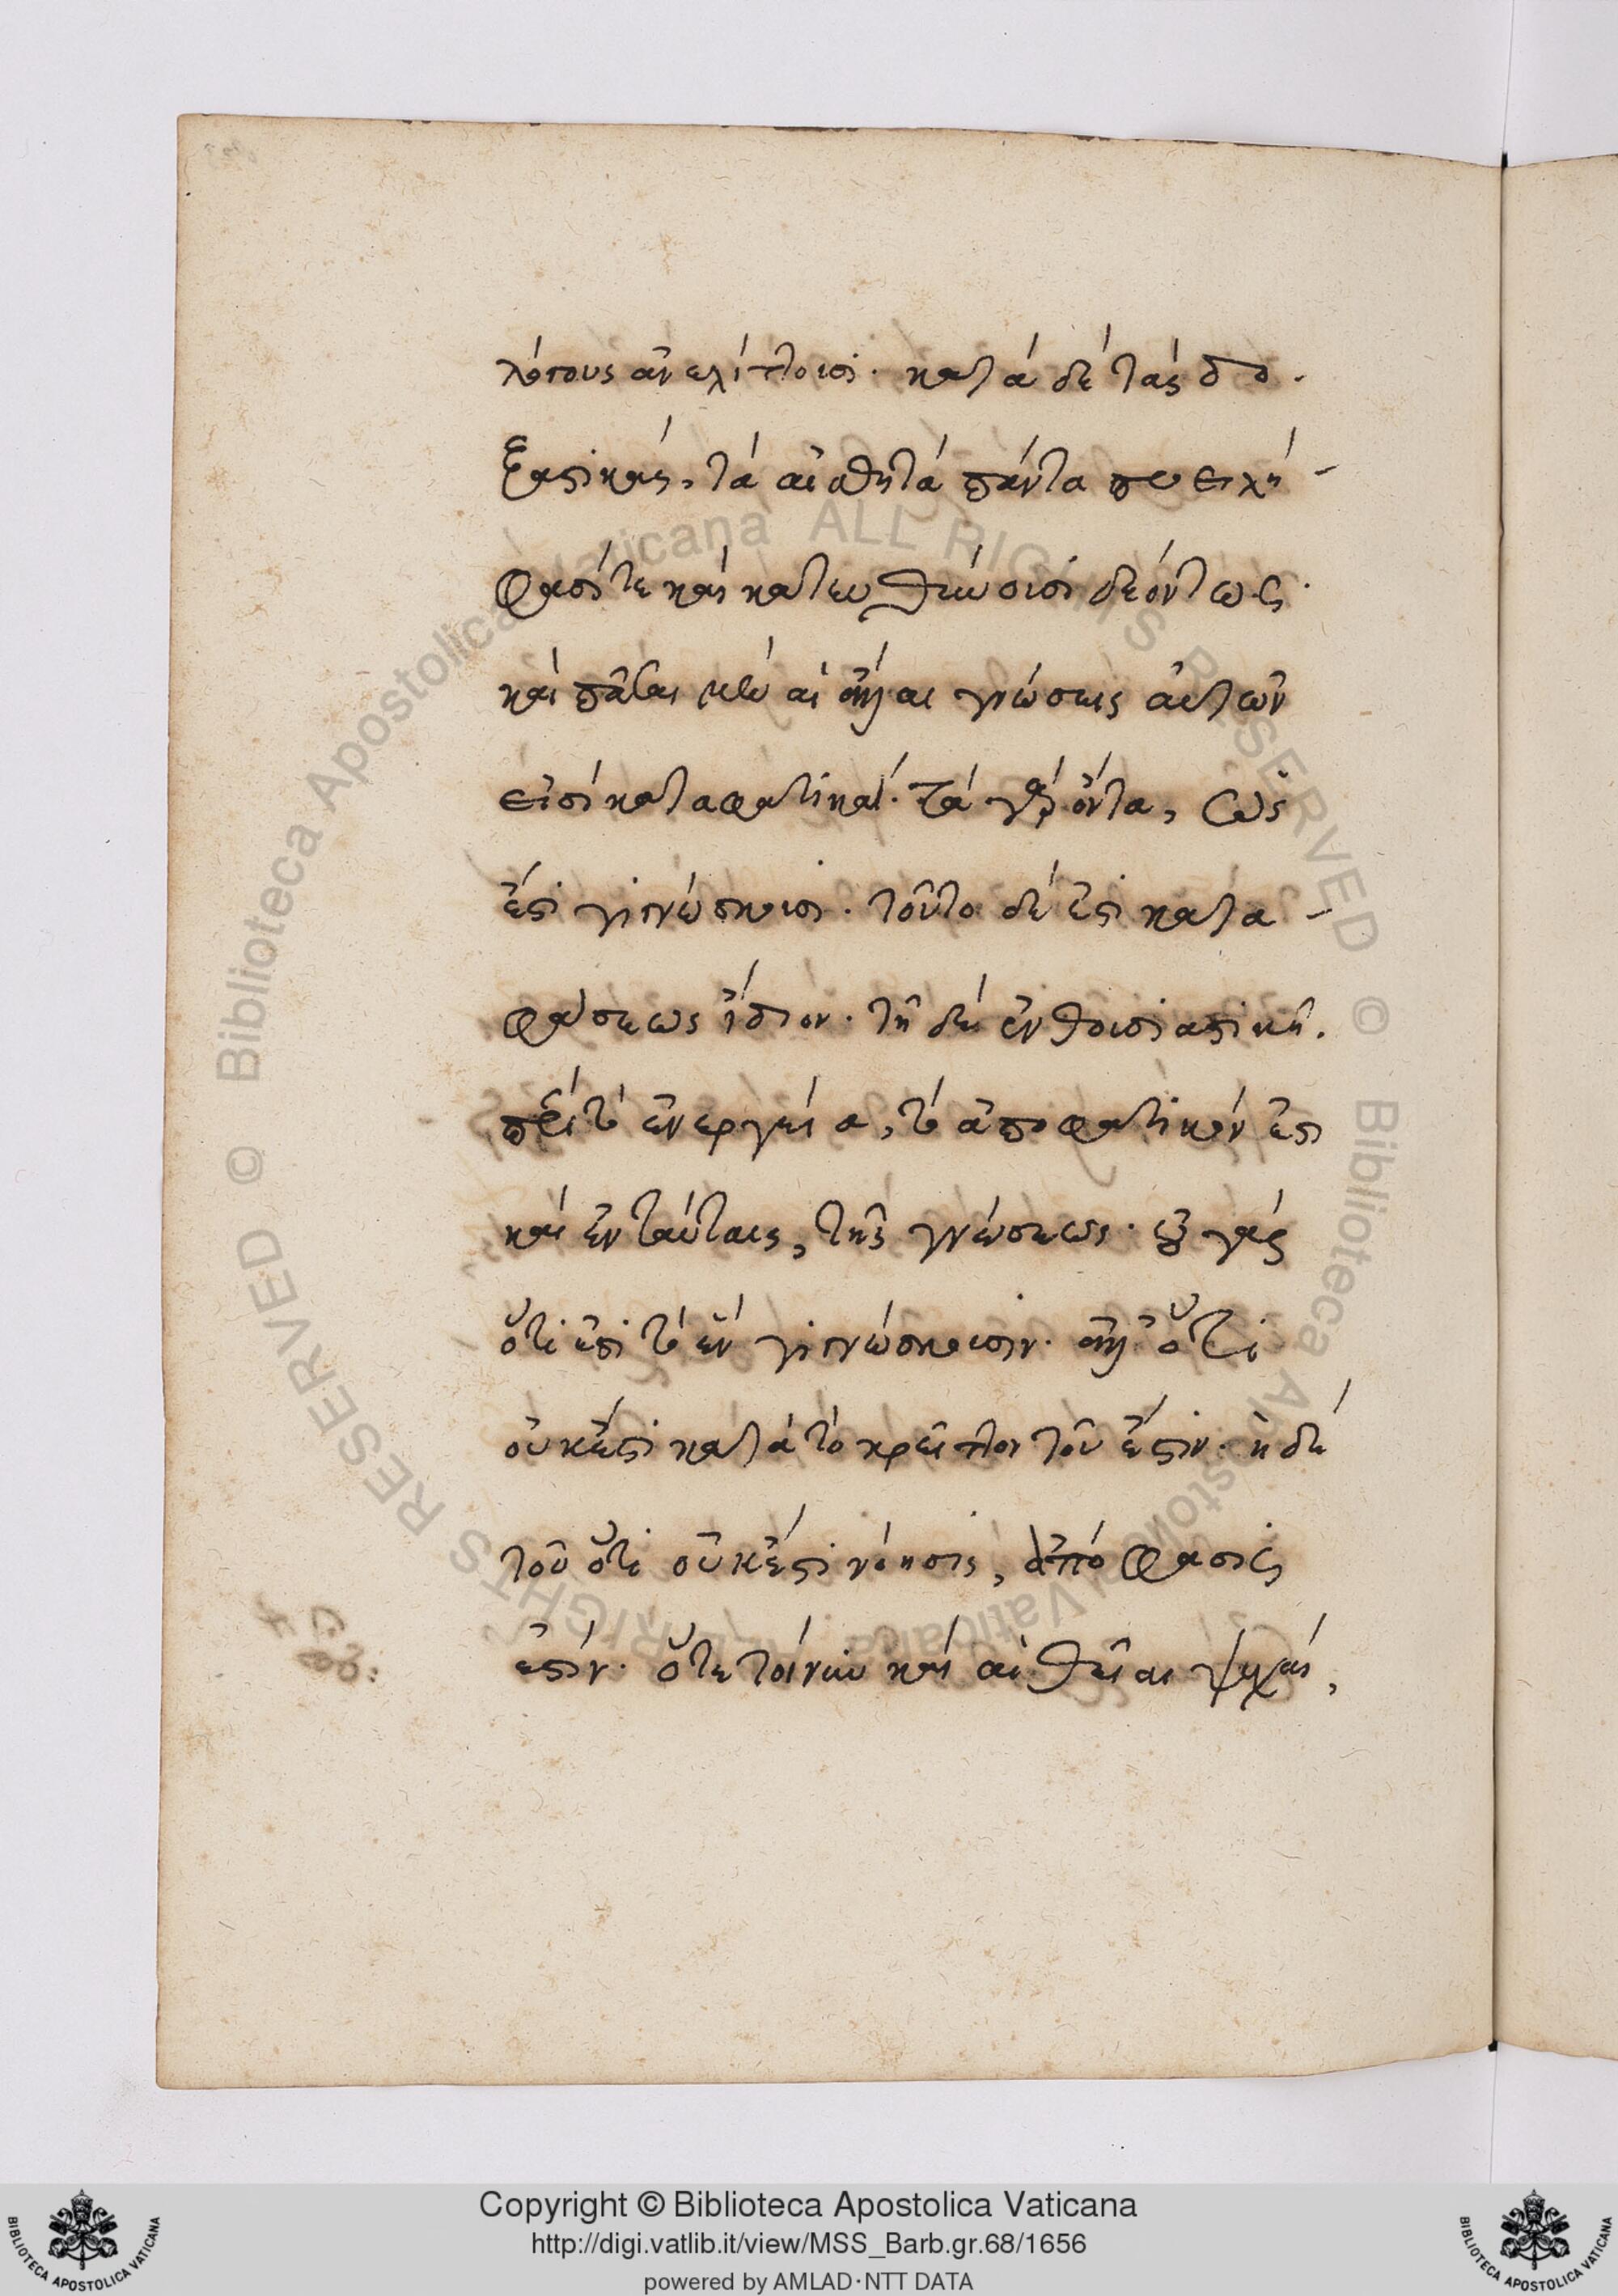 λόγους ἀνελίττουσι· κατὰ δὲ τὰς δο.
ξαστικὰς, τὰ αἰσθητὰ πάντα προειλή-
φασί τε καὶ κατευθύνουσι δεόντως·
καὶ πᾶσαι μὲν αἱ ἄλλαι γνώσεις αὐτῶν
εἰσὶ καταφατικαί· τὰ γὰρ ὄντα, ὡς
ἔστι γινώσκουσι. τοῦτο δέ ἐστι κατα-
φάσεως ἴδιον. τῇ δὲ ἐνθουσιαστικῇ.
περὶ τὸ ἓν ἐργεία, τὸ ἀποφατικόν ἐστι
καὶ ἐν ταύταις, τῆς γνώσεως· οὐ γὰρ
ὅτι ἐστὶ τὸ ἓν γινώσκουσιν. ἀλλ' ὅτι
οὐκ ἔστι κατὰ τὸ κρεῖττον τοῦ ἔστιν. ἡ δὲ
τοῦ ὅτι οὐκ ἔστι νόησις, ἀπόφασις
ἐστίν. ὅτε τοίνυν καὶ αἱ θεῖαι ψυχαὶ,
Copyright © Biblioteca Apostolica Vaticana
http://digi.vatlib.it/view/MSS_Barb.gr.68/1656
powered by AMLAD·NTT DATA
BIBLIOTECA APOSTOLICA VATICANA
BIBLIOTECA APOSTOLICA VATICANA
© Biblioteca Apostolica Vaticana ALL RIGHTS RESERVED
© Biblioteca Apostolica Vaticana ALL RIGHTS RESERVED